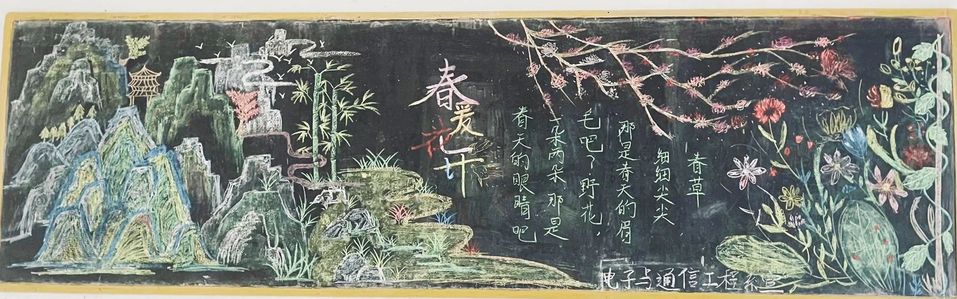 春暖花开
春草
细细尖尖,
那是春天的眉
毛吧?野花,
一朵两朵,那是
春天的眼睛吧
电子与通信工程系宣